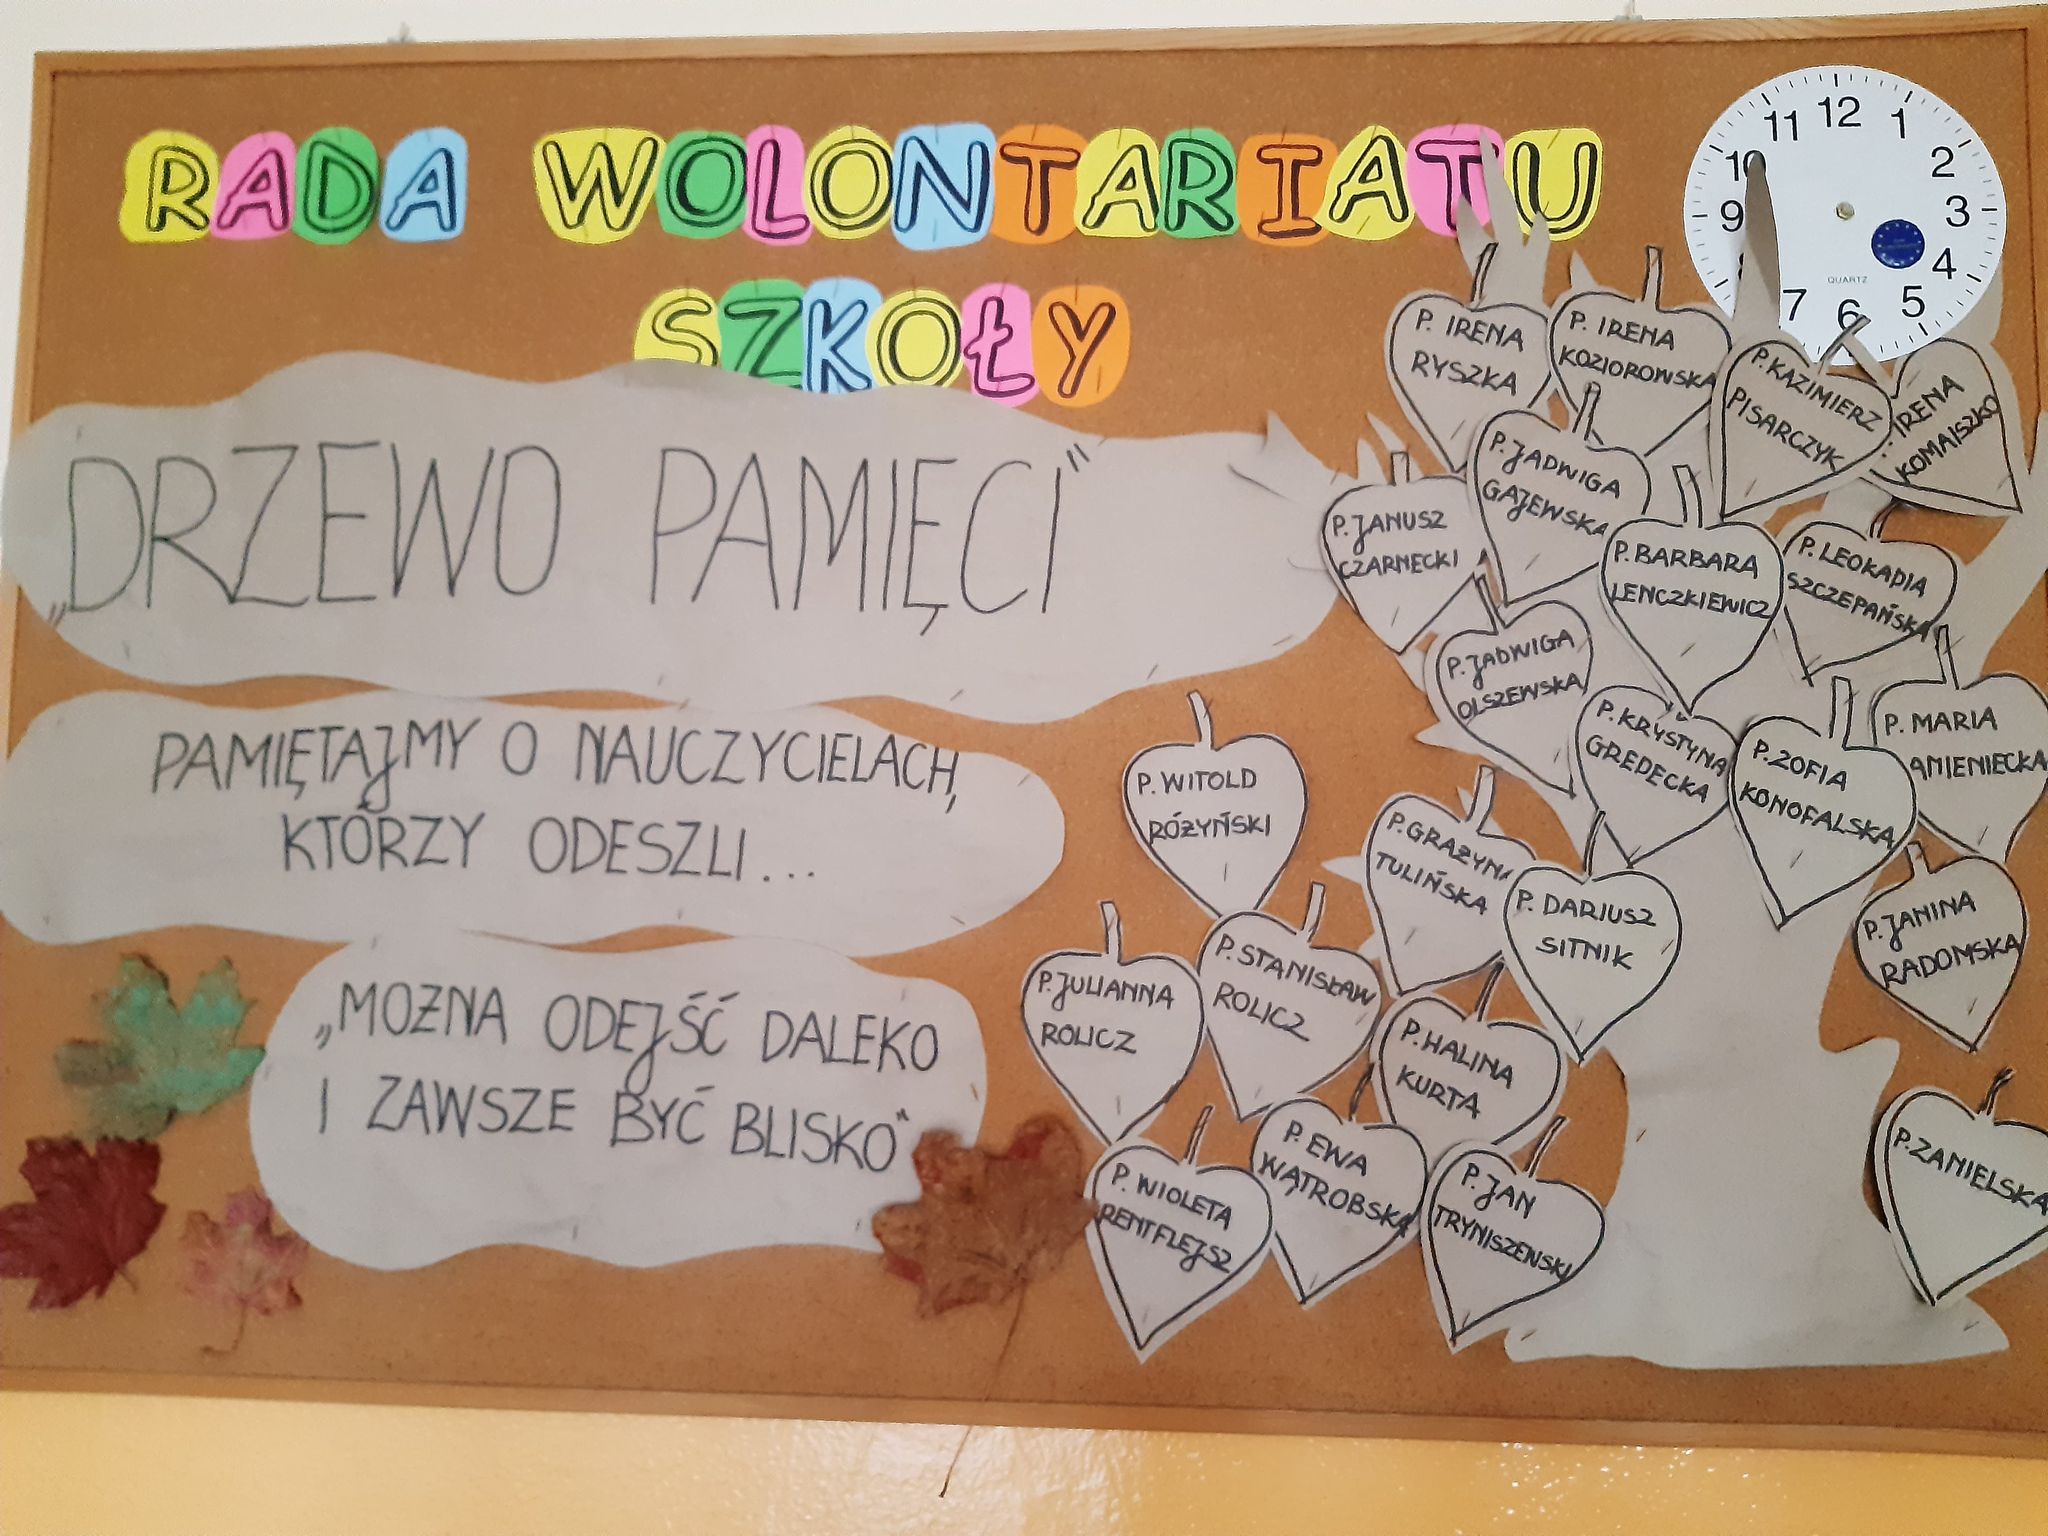 RADA WOLONTARIATU
SZKOŁY
„DRZEWO PAMIĘCI”
PAMIĘTAJMY O NAUCZYCIELACH,
KTÓRZY ODESZLI...
„MOŻNA ODEJŚĆ DALEKO
I ZAWSZE BYĆ BLISKO”
12
11 1
10 2
9 3
4
7 6 5
QUARTZ
P. IRENA
RYSZKA
P. IRENA
KOZIOROWSKA
P. KAZIMIERZ
PISARCZYK
IRENA
KOMAISZKO
P. JADWIGA
GAJEWSKA
P. JANUSZ
CZARNECKI
P. BARBARA
LENCZKIEWICZ
P. LEOKADIA
SZCZEPAŃSKA
P. JADWIGA
OLSZEWSKA
P. KRYSTYNA
GREDECKA
P. ZOFIA
KONOFALSKA
P. MARIA
AMIENIECKA
P. WITOLD
RÓŻYŃSKI
P. GRAŻYNA
TULIŃSKA
P. DARIUSZ
SITNIK
P. JANINA
RADOMSKA
P. JULIANNA
ROLICZ
P. STANISŁAW
ROLICZ
P. HALINA
KURTA
P. WIOLETA
RENTFLEJSZ
P. EWA
WĄTROBSKA
P. JAN
TRYNISZEWSKI
P. ZANIELSKA